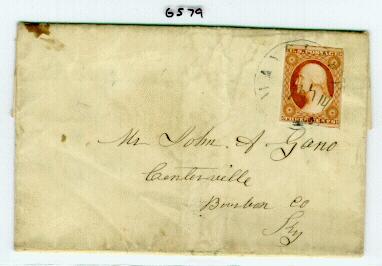 6579
U.S. POSTAGE
THREE CENTS
Mr John A Gano
Centerville
Bourbon Co
Ky